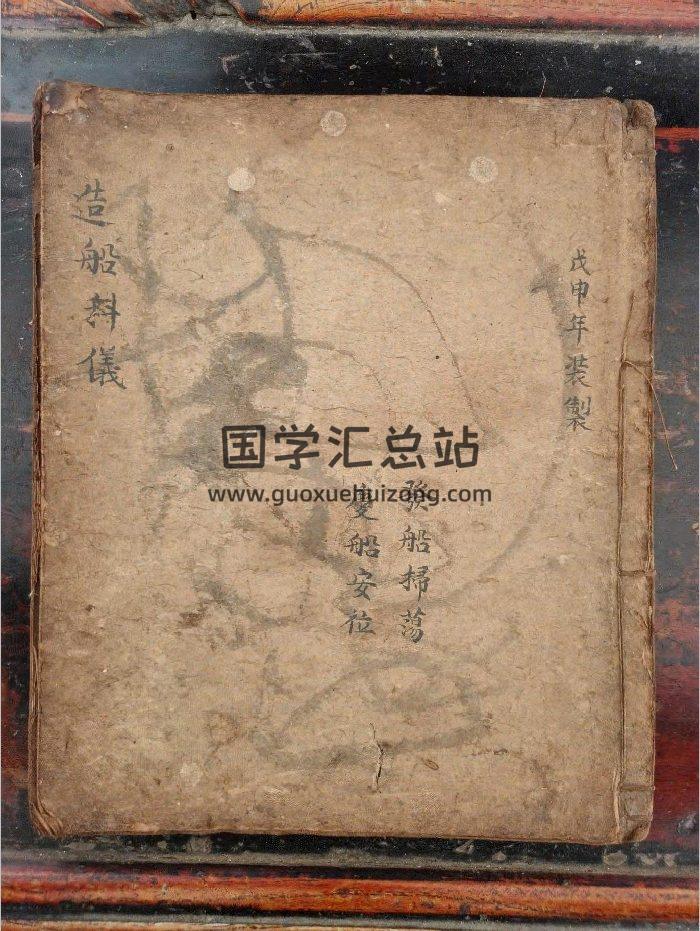 戊申年装製
發船掃蕩
慶船安位
造船科儀
国学汇总站
www.guoxuehuizong.com